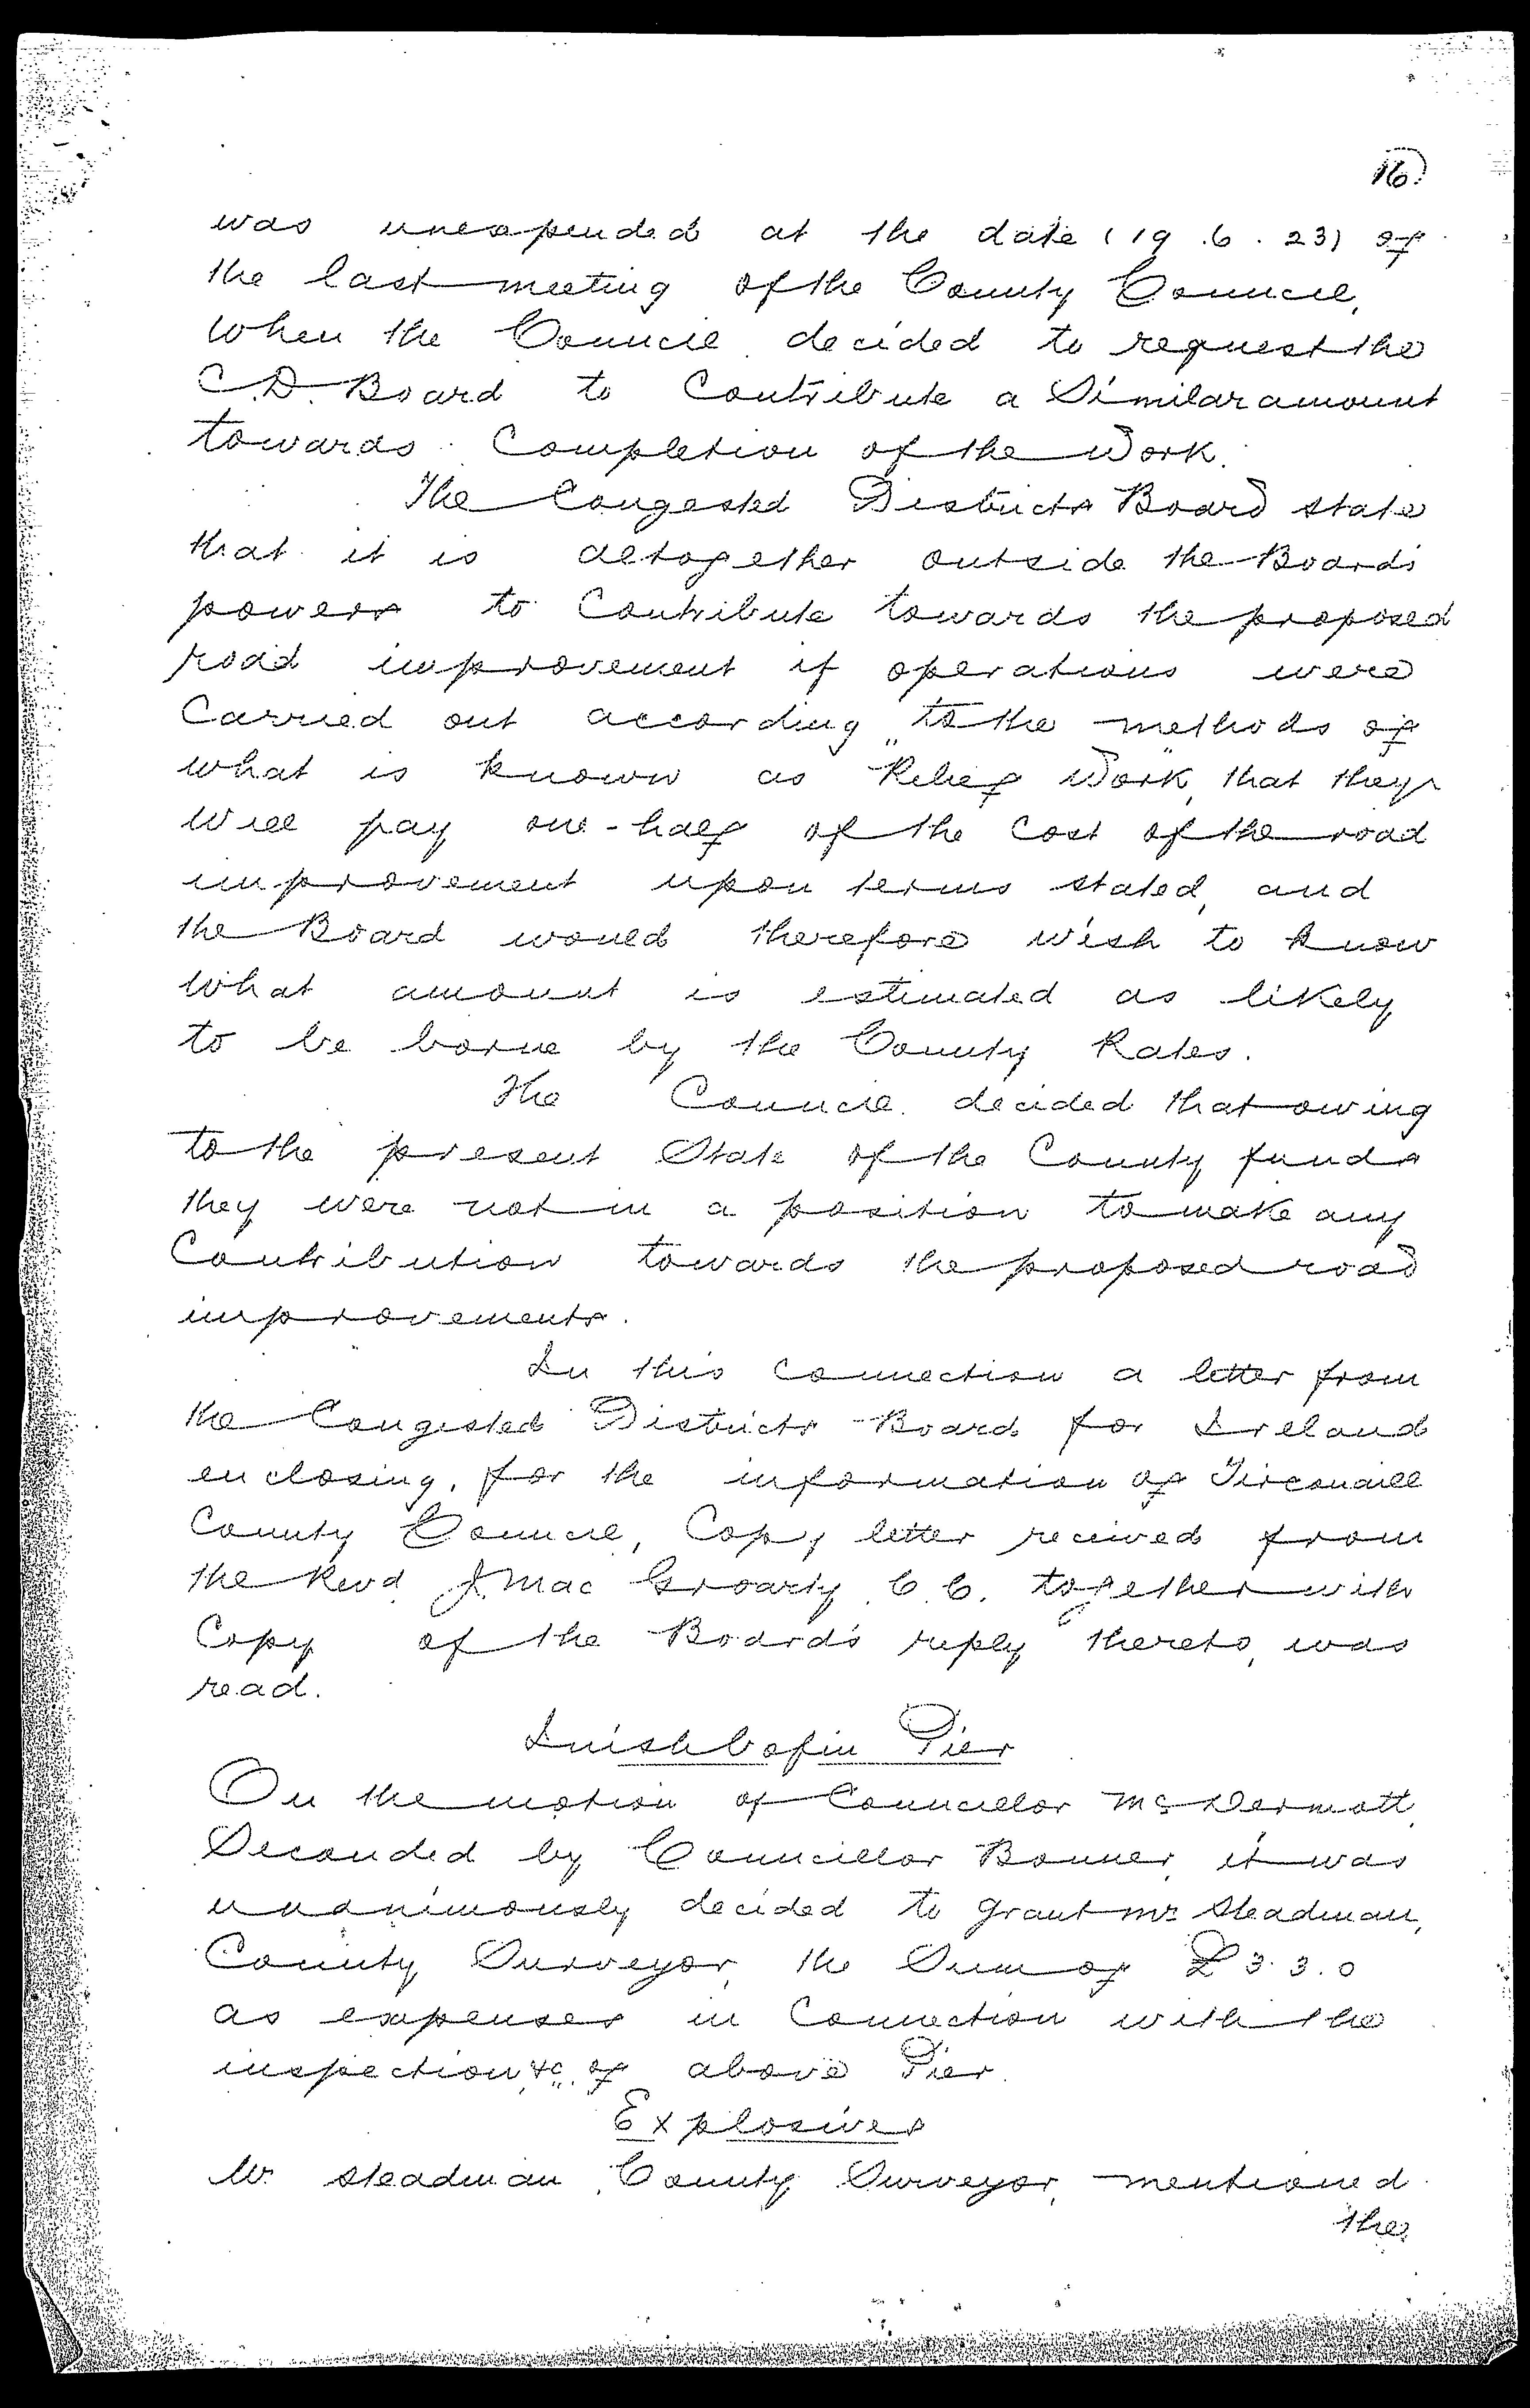 16.
was unexpended at the date (19.6.23) of
the last meeting of the County Council,
when the Council decided to request the
C.D. Board to Contribute a Similar amount
towards Completion of the Work.
The Congested Districts Board state
that it is altogether outside the Board's
powers to Contribute towards the proposed
road improvement if operations were
Carried out according to the methods of
what is known as "Relief Work", that they
will pay one-half of the Cost of the road
improvement upon terms stated, and
the Board would therefore wish to know
what amount is estimated as likely
to be borne by the County Rates.
The Council decided that owing
to the present State of the County funds
they were not in a position to make any
Contribution towards the proposed road
improvements.
In this Connection a letter from
the Congested Districts Board for Ireland
enclosing, for the information of Tirconaill
County Council, Copy letter received from
the Revd. J. Mac Groarty C.C. together with
Copy of the Board's reply thereto, was
read.
Inishbofin Pier
On the motion of Councillor McDermott,
Seconded by Councillor Bonner, it was
unanimously decided to grant Mr. Steadman,
County Surveyor, the Sum of £3.3.0
as expenses in Connection with the
inspection &c. of above Pier.
Explosives
Mr. Steadman, County Surveyor, mentioned
the